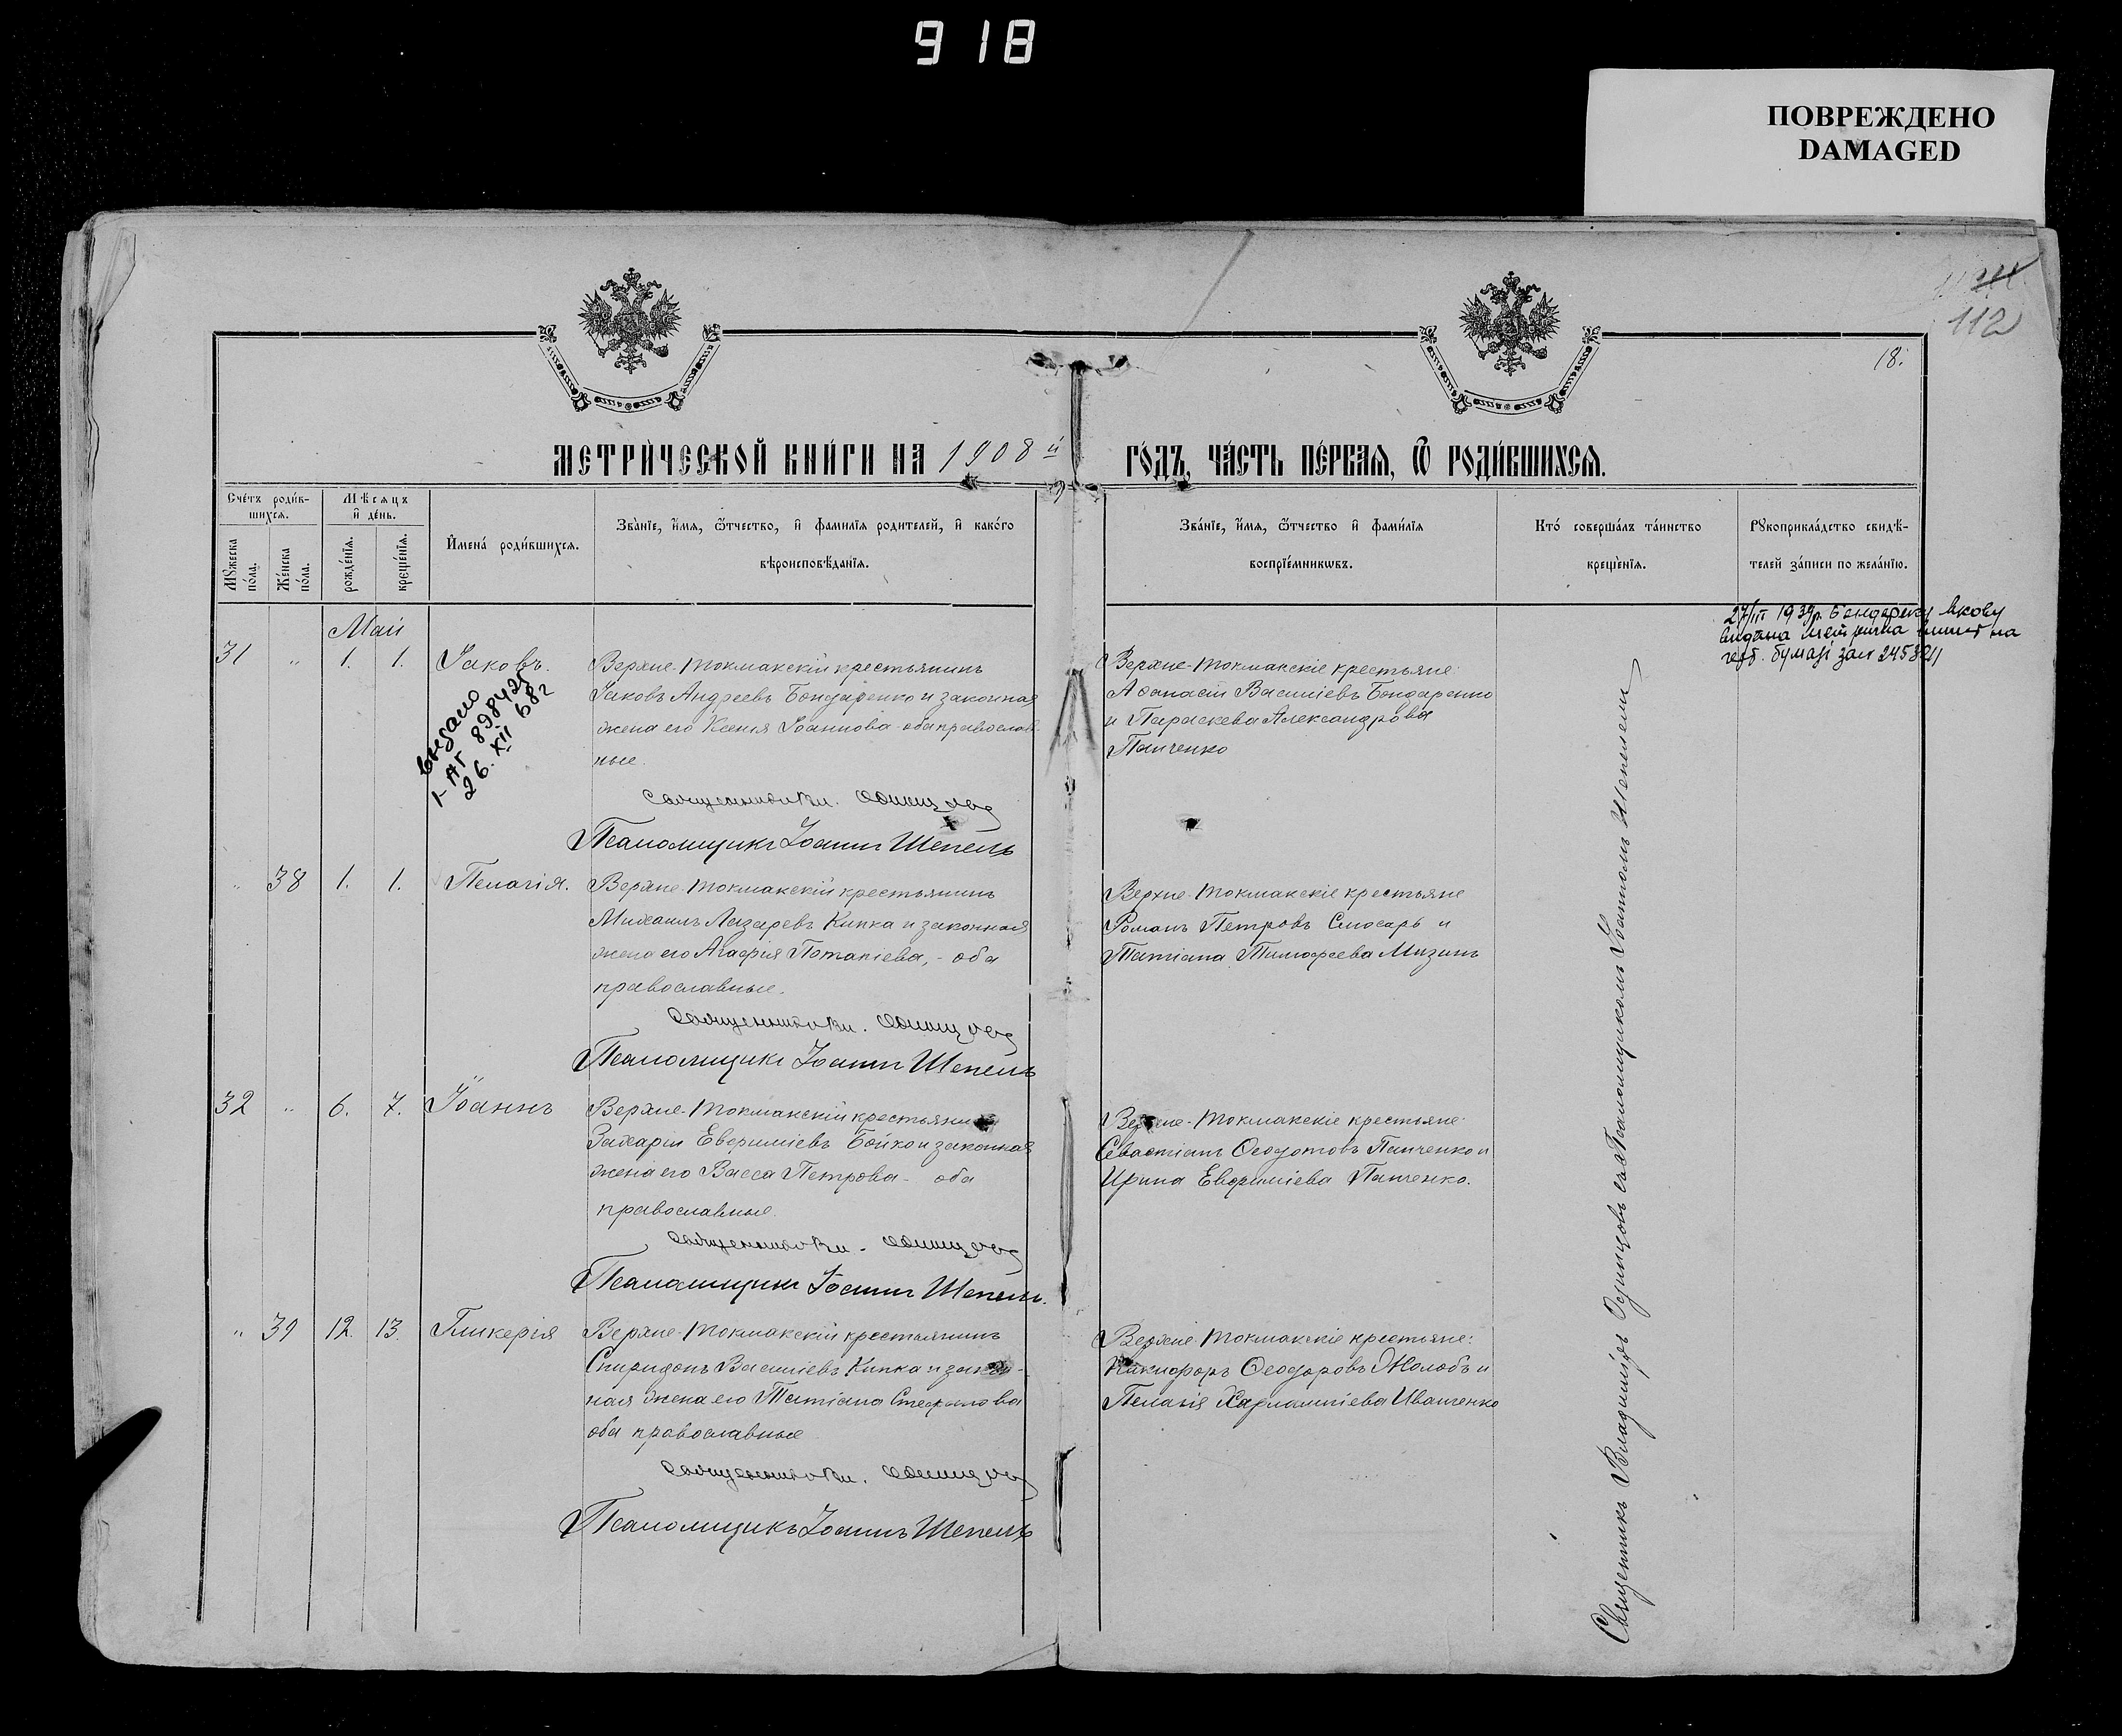 918
ПОВРЕЖДЕНО
DAMAGED
112
18.
МЕТРИ́ЧЕСКОЙ КНИ́ГИ НА 1908 й
ГО́ДЪ, ЧА́СТЬ ПЕ́РВАЯ, Ѿ РОДИ́ВШИХСЯ.
Сче́тъ роди́в-
шихся.
Мѣсяцъ
и де́нь.
Му́жеска
по́ла.
Же́нска
по́ла.
рожде́нїя.
креще́нїя.
Имена́ роди́вшихся.
Зва́нїе, и́мя, ѻ́тчество, и фами́лїя родителей, и како́го
вѣроисповѣ́данїя.
Зва́нїе, и́мя, ѻ́тчество и фами́лїя
воспрїе́мниковъ.
Кто́ соверша́лъ та́инство
креще́нїя.
Рукоприкла́дство свидѣ́-
телей за́писи по жела́нїю.
Май
31 " 1. 1. Іаковъ.
Верхне-Токмакскій крестьянинъ
Іаковъ Андреевъ Бондаренко и законная
жена его Ксенія Іоаннова оба православ-
ные.
Священникъ Вл. Одинцовъ
Псаломщикъ Іоаннъ Шепель
Верхне-Токмакскіе крестьяне:
Аѳанасій Василіевъ Бондаренко
и Параскева Александрова
Панченко
27/III 1939р. Бондаренку Якову
видана метрична на
герб. бумазі
Выдано
I-АГ 898425
26. XII 68г
" 38 1. 1. Пелагія.
Верхне-Токмакскій крестьянинъ
Михаилъ Лазаревъ Кипка и законная
жена его Агафія Потапіева, - оба
православные.
Священникъ Вл. Одинцовъ
Псаломщикъ Іоаннъ Шепель
Верхне-Токмакскіе крестьяне
Романъ Петровъ Слюсарь и
Татіана Тимофеева Мизинъ
32 " 6. 7. Іоаннъ
Верхне-Токмакскій крестьянинъ
Захарій Евфиміевъ Бойко и законная
жена его Васса Петрова - оба
православные.
Священникъ Вл. Одинцовъ
Псаломщикъ Іоаннъ Шепель.
Верхне-Токмакскіе крестьяне:
Севастіанъ Ѳеодотовъ Панченко и
Ирина Евфиміева Панченко.
" 39 12. 13. Гликерія
Верхне-Токмакскій крестьянинъ
Спиридонъ Василіевъ Кипка и закон-
ная жена его Татіана Стефанова
оба православные
Священникъ Вл. Одинцовъ
Псаломщикъ Іоаннъ Шепель
Верхне-Токмакскіе крестьяне:
Никифоръ Ѳеодоровъ Жолобъ и
Пелагія Харлампіева Иванченко
Священникъ Владиміръ Одинцовъ съ Псаломщикомъ Іоанномъ Шепелемъ